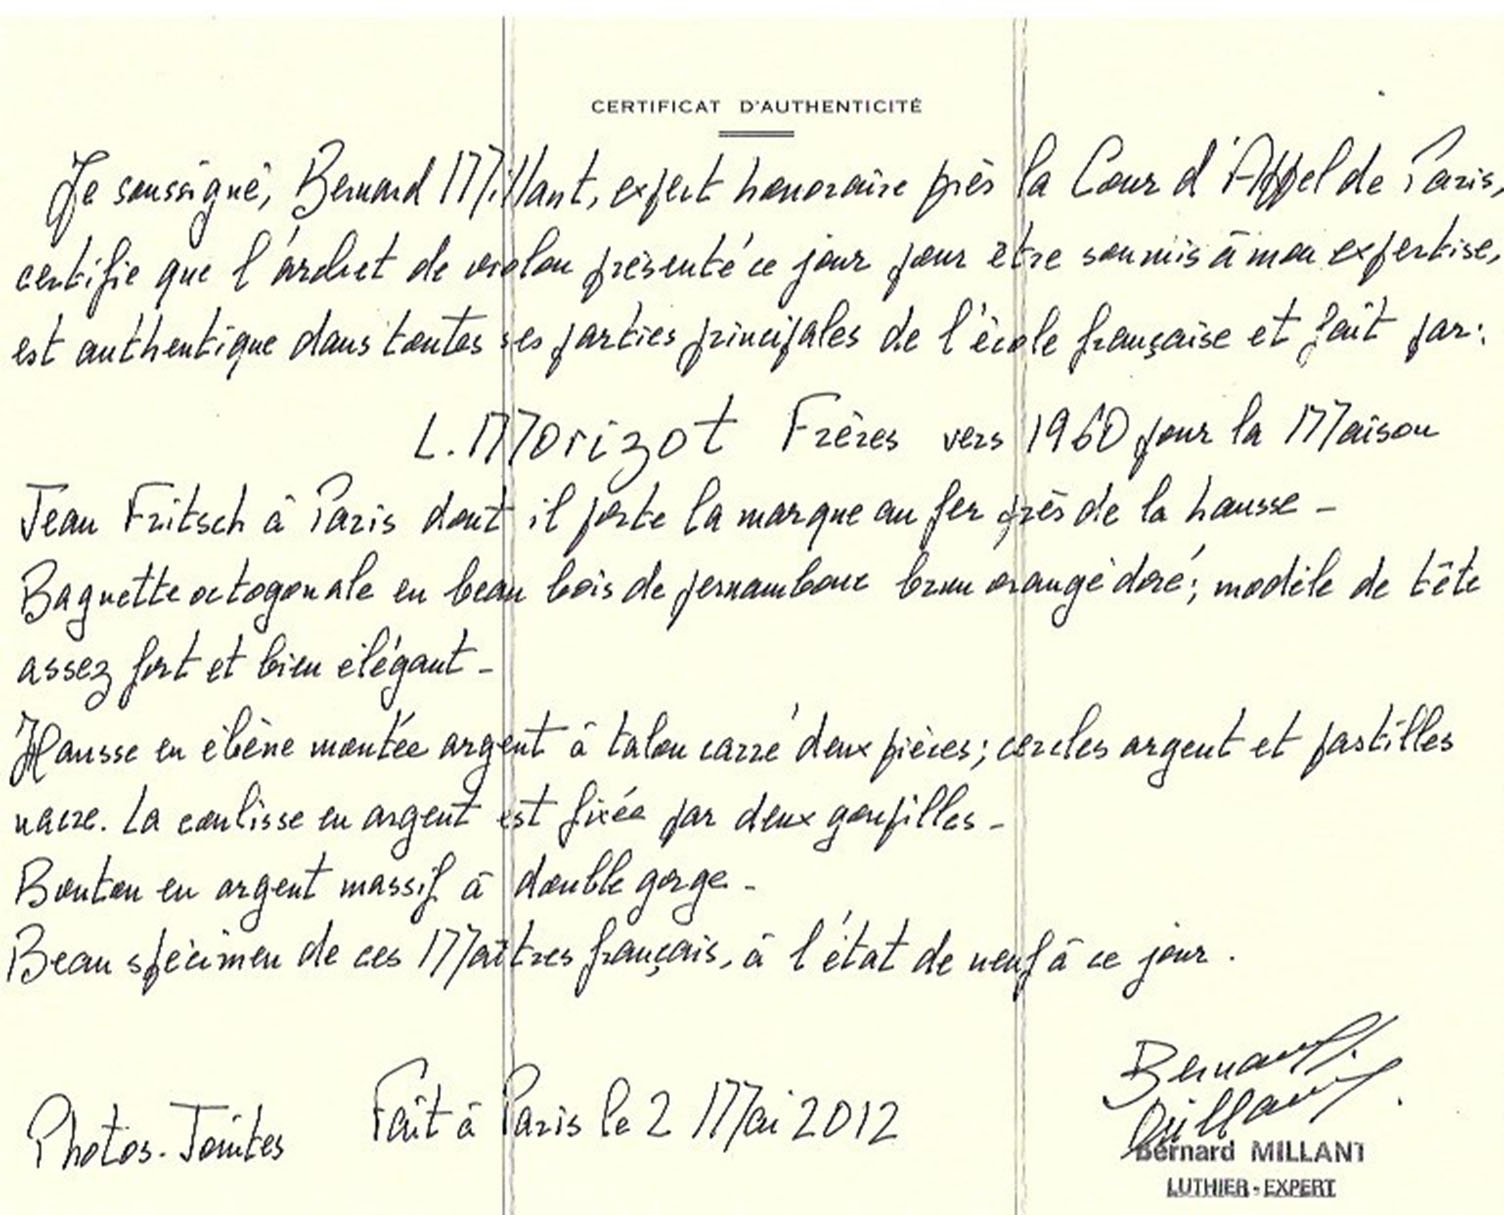 CERTIFICAT D'AUTHENTICITÉ
Je soussigné, Bernard Millant, expert honoraire près la Cour d'Appel de Paris,
certifie que l'archet de violon présenté ce jour pour être soumis à mon expertise,
est authentique dans toutes ses parties principales de l'école française et fait par:
L. Morizot Frères vers 1960 pour la Maison
Jean Fritsch à Paris dont il porte la marque au fer près de la hausse -
Baguette octogonale en beau bois de pernambouc brun orangé doré; modèle de tête
assez fort et bien élégant -
Hausse en ébène montée argent à talon carré deux pièces; cercles argent et pastilles
nacre. La coulisse en argent est fixée par deux goupilles -
Bouton en argent massif à double gorge -
Beau spécimen de ces Maîtres français, à l'état de neuf à ce jour.
Photos-Jointes Fait à Paris le 2 Mai 2012
Bernard
Millant
Bernard MILLANT
LUTHIER-EXPERT